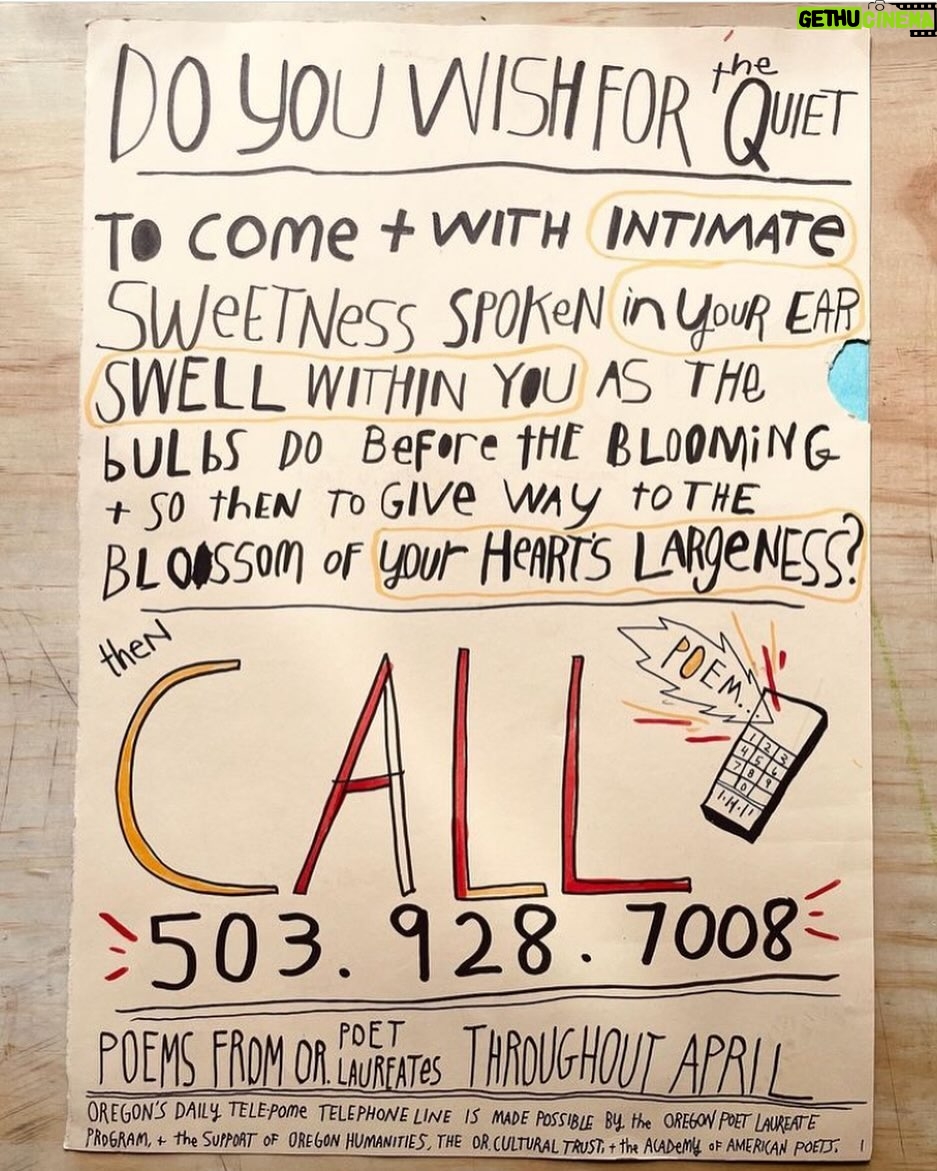 GETHUCINEMA
DO YOU WISH FOR the QUIET
TO COME + WITH INTIMATE
SWEETNESS SPOKEN in your EAR
SWELL WITHIN YOU AS THE
BULBS DO BEFORE THE BLOOMING
+ SO THEN TO GIVE WAY TO THE
BLOSSOM OF your HEART'S LARGENESS?
then
CALL
POEM...
1 2 3
4 5 6
7 8 9
503.928.7008
POEMS FROM OR. POET LAUREATES THROUGHOUT APRIL
OREGON'S DAILY TELE-POME TELEPHONE LINE IS MADE POSSIBLE BY the OREGON POET LAUREATE
PROGRAM, + the SUPPORT OF OREGON HUMANITIES, THE OR. CULTURAL TRUST, + the ACADEMY OF AMERICAN POETS.